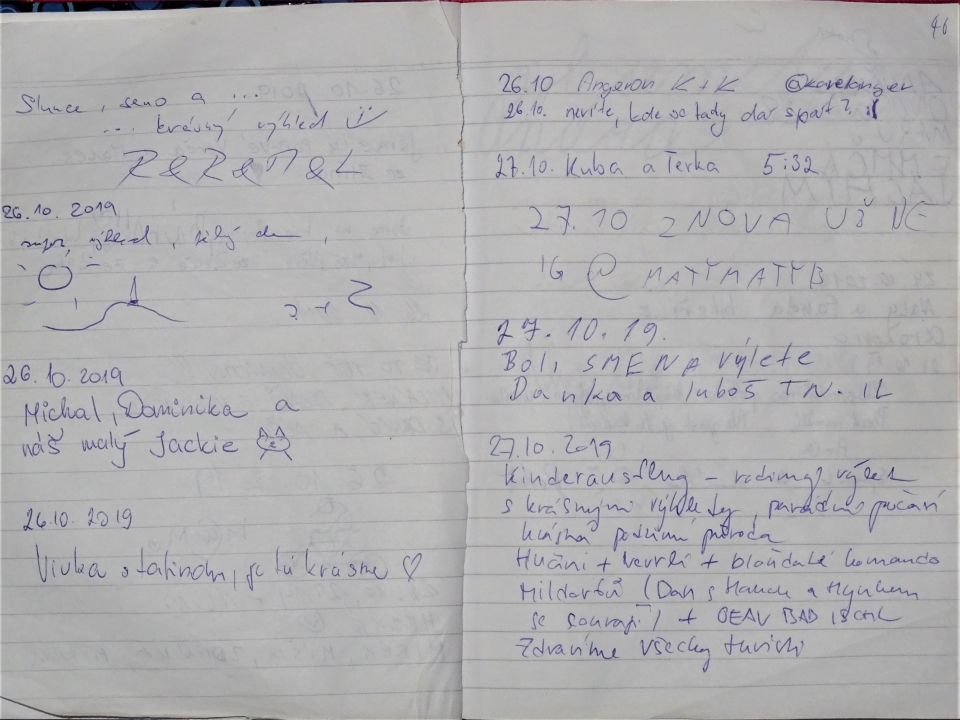 Slunce, seno a ...
... krásný výhled
26.10.2019
super výhled, bílý den,
26.10.2019
Michal, Dominika a
náš malý Jackie
26.10.2019
Vivka s tatinom, je tú krásne ♡
46
26.10 Angeron K+K @karelanger
26.10. nevíte, kde se tady dá spát?
27.10. Kuba a Terka 5:32
27.10 ZNOVA UŽ NE
IG @ MATYMATYB
27.10.19.
Boli SME NA výlete
Danka a Luboš TN. IL
27.10.2019
Kinderausflug – rodinný výlet
s krásnými výhledy, parádní počasí
krásná podzimní příroda
+ + komando
(Dan s Hankou a Hynkem
se ) + OEAV BAD ISCHL
Zdravíme všecky turisty